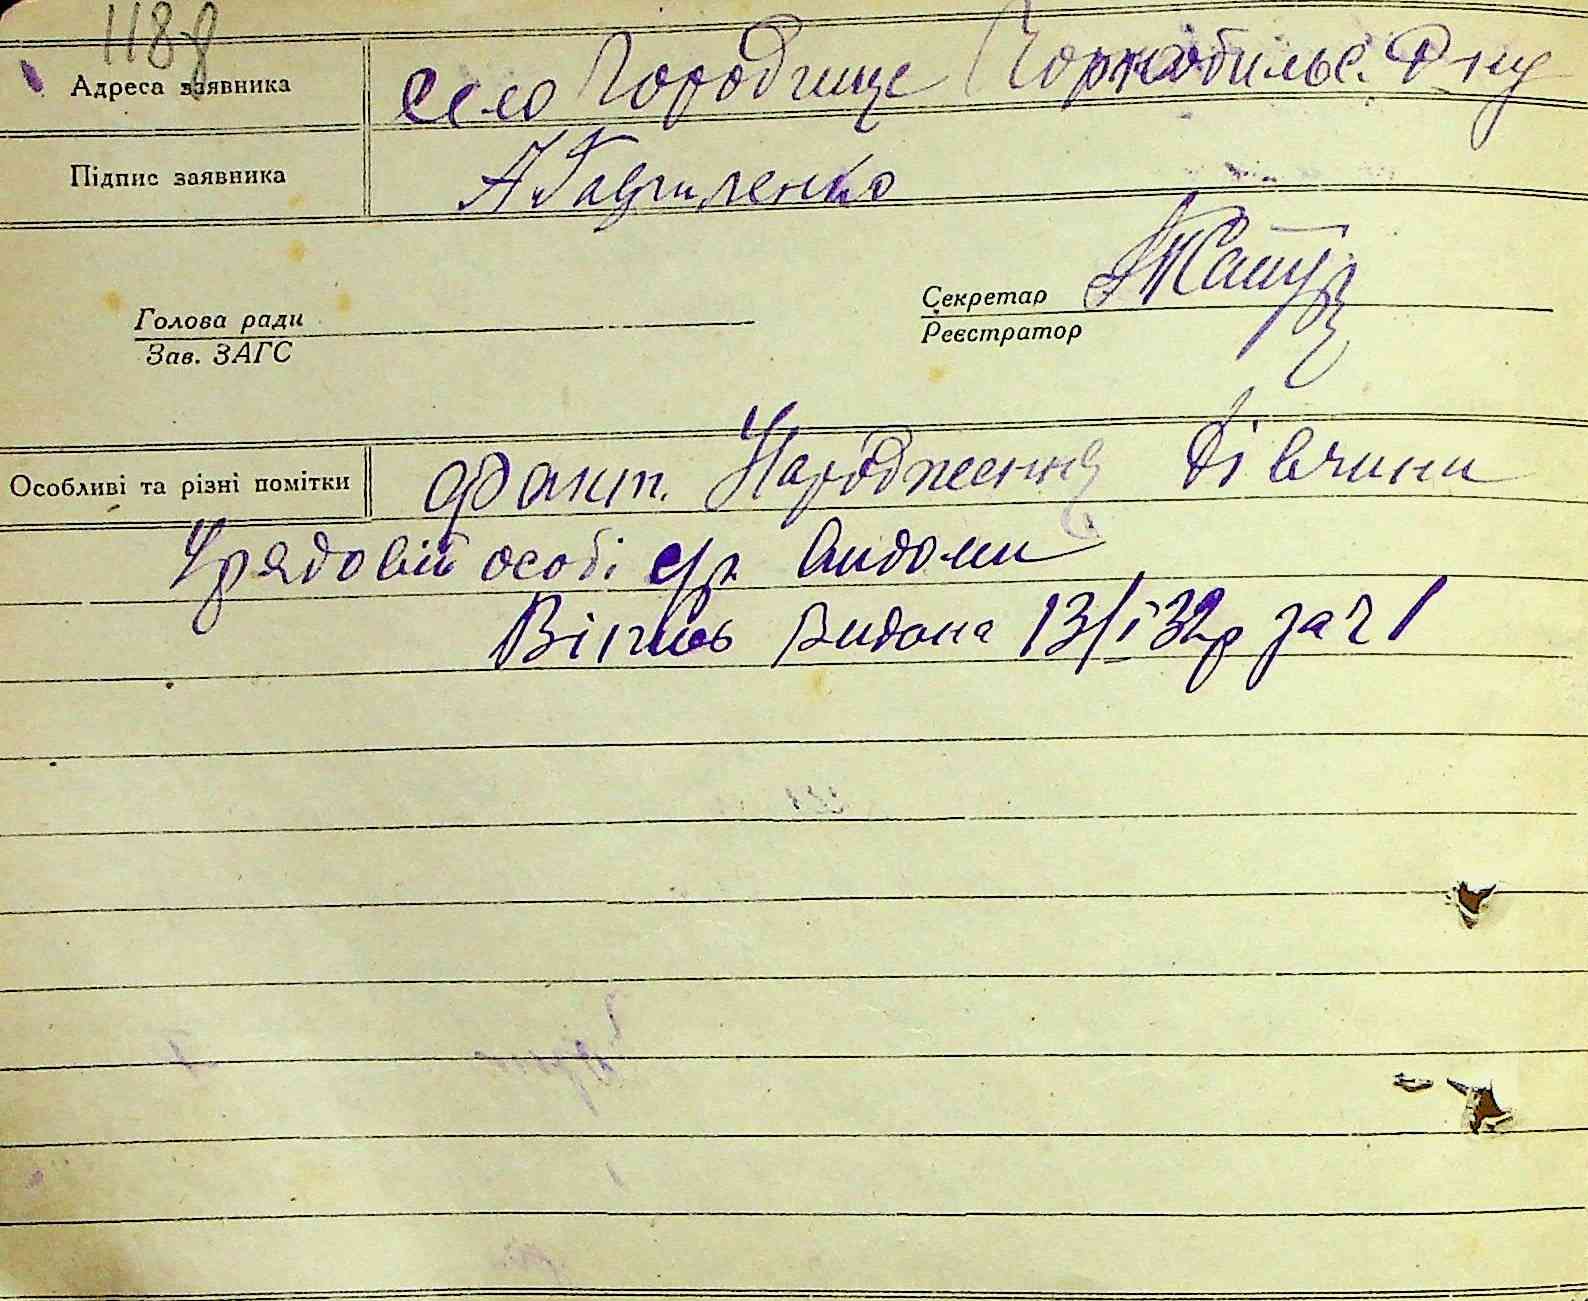 118
Адреса заявника село Городище Чорнобильс. Р-ну
Підпис заявника А Гавриленко
Голова ради
Зав. ЗАГС
Секретар
Реєстратор
Особливі та різні помітки Факт. Народження дівчини
Урядовій особі с/р. видоми
Віпись видана 13/I 32р за ч 1